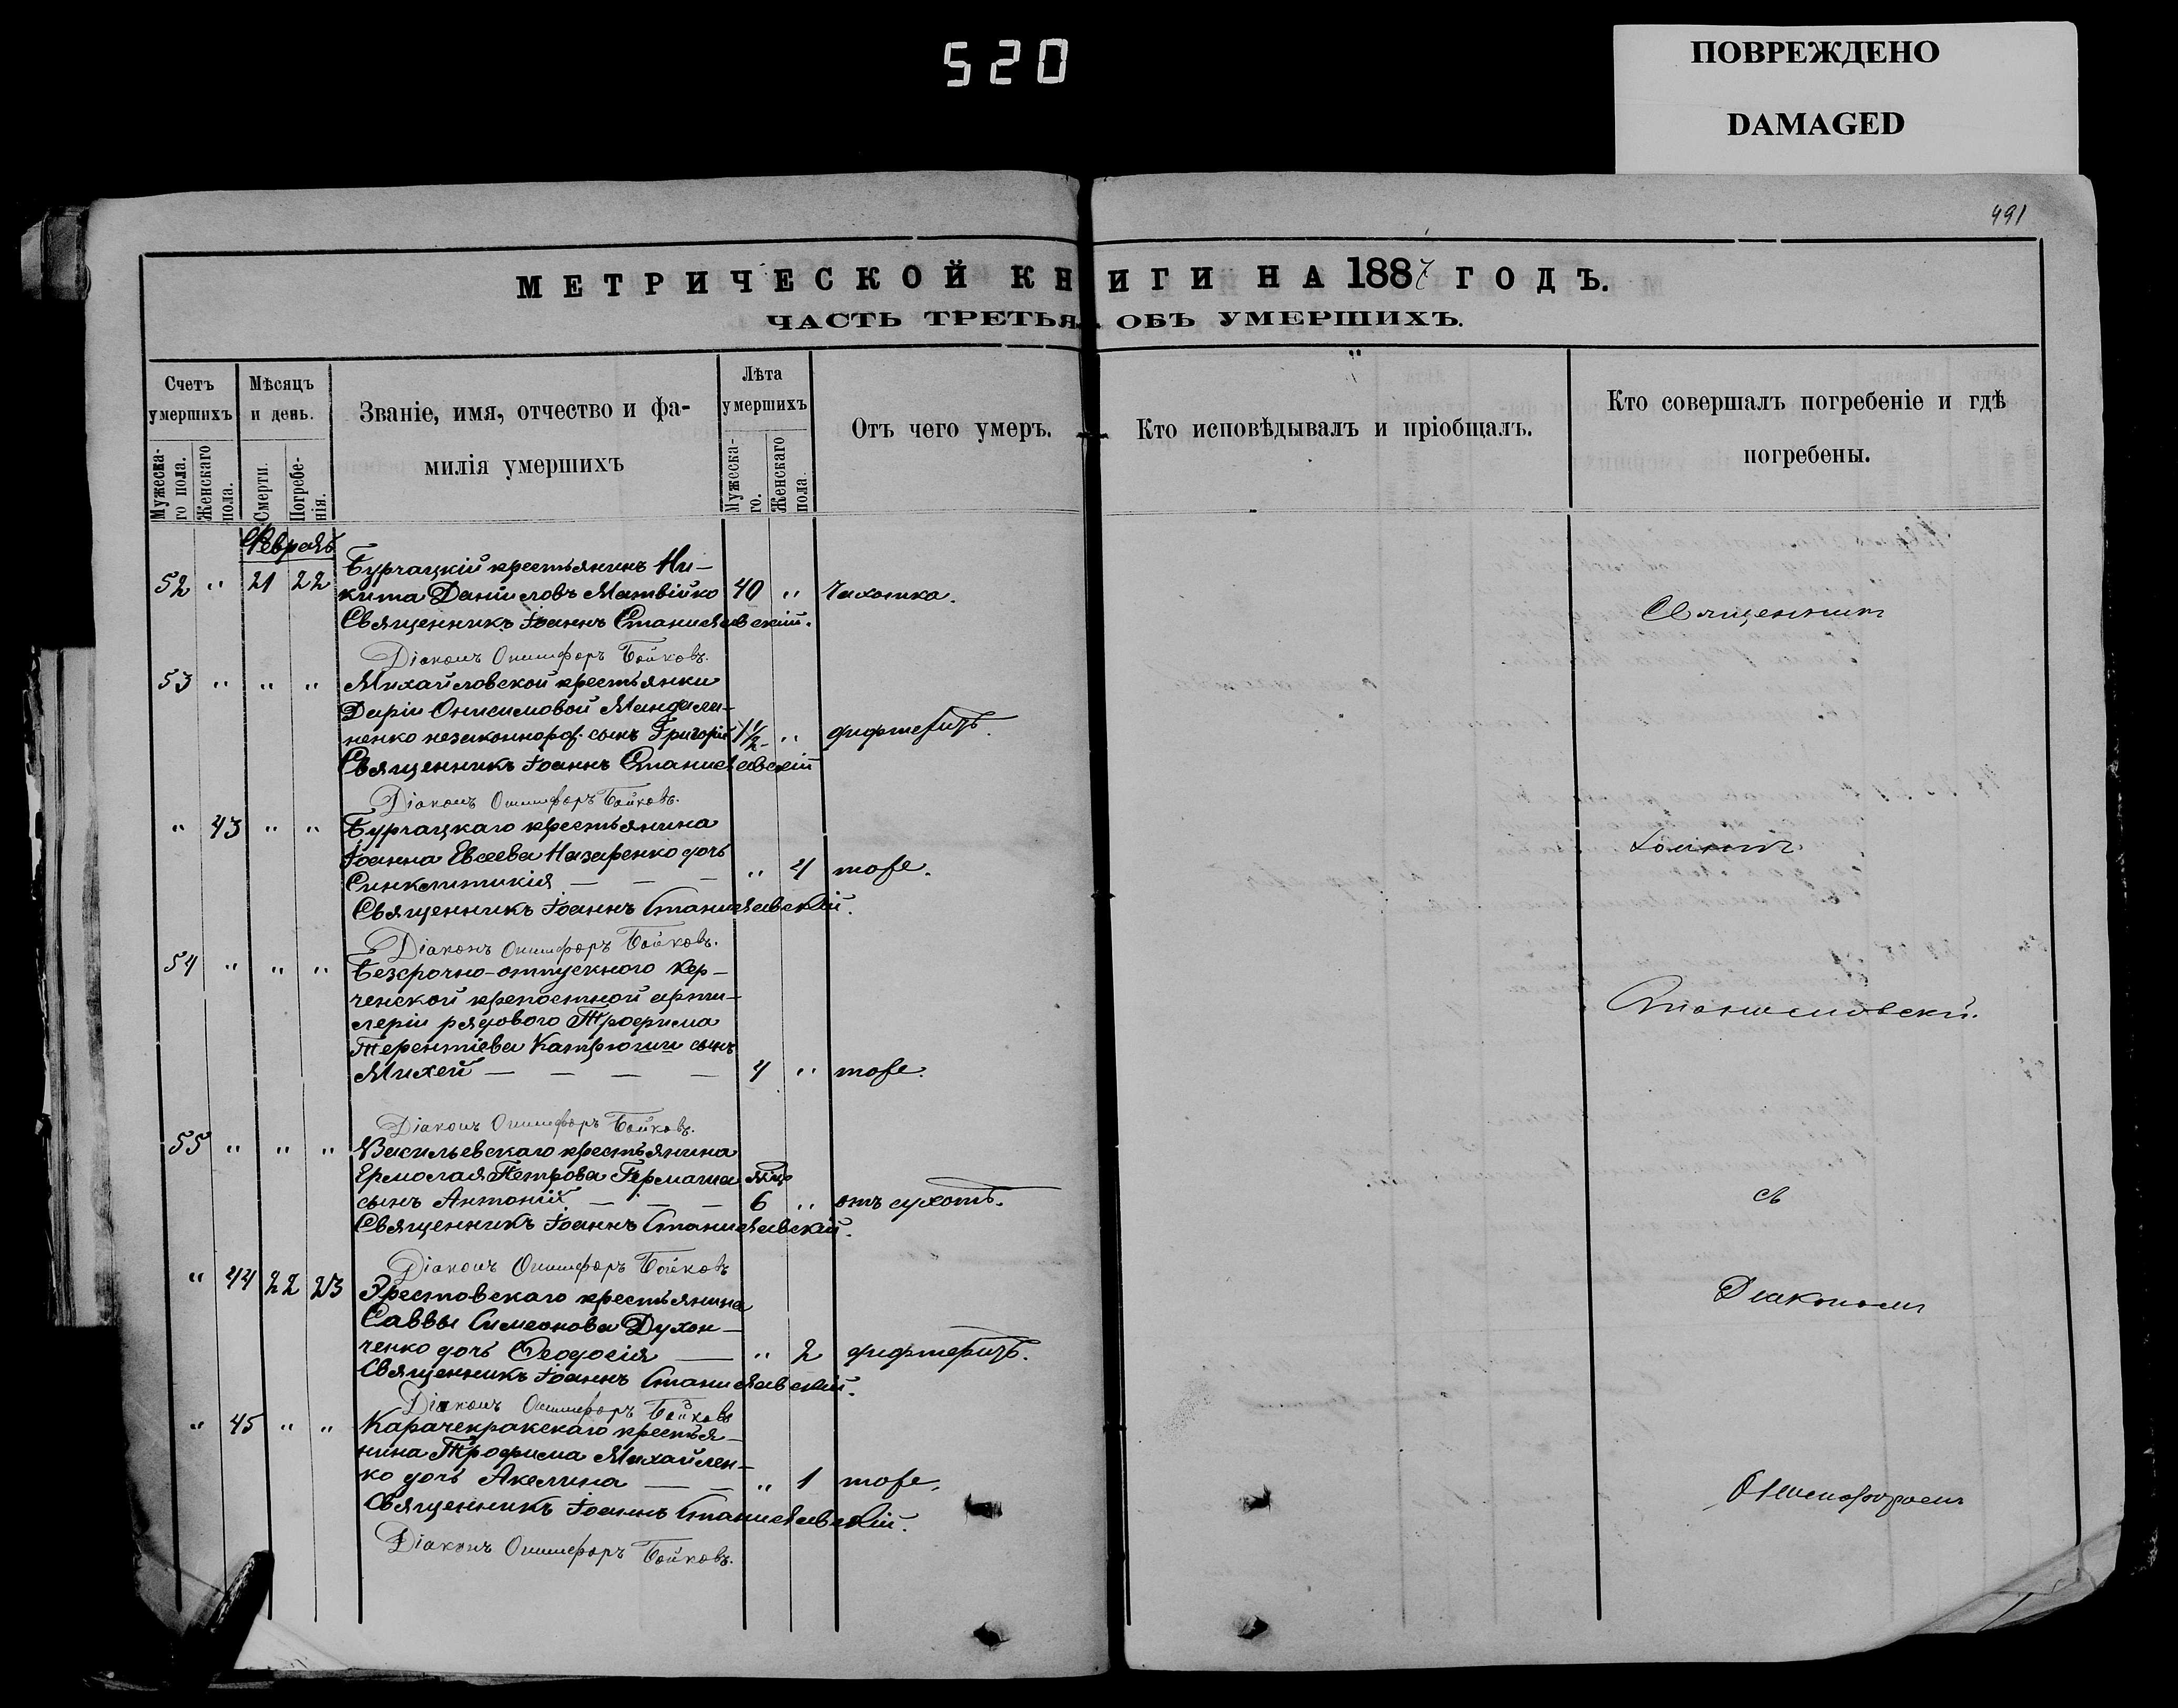 520
ПОВРЕЖДЕНО
DAMAGED
491
МЕТРИЧЕСКОЙ КНИГИ НА 1887 ГОДЪ.
ЧАСТЬ ТРЕТЬЯ ОБЪ УМЕРШИХЪ.
Счетъ умершихъ
Мужеска-
го пола.
Женскаго
пола.
Мѣсяцъ и день.
Смерти.
Погребе-
нія.
Званіе, имя, отчество и фа-
милія умершихъ
Лѣта умершихъ
Мужеска-
го.
Женскаго
пола.
Отъ чего умеръ.
Кто исповѣдывалъ и пріобщалъ.
Кто совершалъ погребеніе и гдѣ
погребены.
Февраль
Бурчацкій крестьянинъ Ни-
52 " 21 22 кита Даніиловъ Матвійко 40 " Чахотка.
Священникъ Іоаннъ Станиславскій.
Діаконъ Онисифоръ Бойковъ.
53 " " " Михайловской крестьянки
Даріи Онисимовой
незаконнорож. сынъ Григорій 1½ " дифтеритъ.
Священникъ Іоаннъ Станиславскій
Діаконъ Онисифоръ Бойковъ.
" 43 " " Бурчацкаго крестьянина
Іоанна Евсеева Назаренко дочь
Синклитикія — — — " 4 тоже.
Священникъ Іоаннъ Станиславскій.
Діаконъ Онисифоръ Бойковъ.
54 " " " Безсрочно-отпускного Кер-
ченской крепостной арти-
леріи рядового Трофима
Терентіева сынъ
Михей — — — — 4 " тоже.
Діаконъ Онисифоръ Бойковъ.
55 " " " Васильевскаго крестьянина
Ермолая Петрова Гермаша мѣц
сынъ Антоній — — — 6 " отъ сухотъ.
Священникъ Іоаннъ Станиславскій.
Діаконъ Онисифоръ Бойковъ
" 44 22 23 Эрестовскаго крестьянина
Саввы Симеонова Духон-
ченко дочь Ѳеодосія — " 2 дифтеритъ.
Священникъ Іоаннъ Станиславскій.
Діаконъ Онисифоръ Бойковъ
" 45 " " Карачекракскаго крестья-
нина Трофима Михайлен-
ко дочь Акелина — — " 1 тоже.
Священникъ Іоаннъ Станиславскій.
Діаконъ Онисифоръ Бойковъ.
Священникъ
Іоаннъ
Станиславскій.
съ
Діакономъ
Онисифоромъ